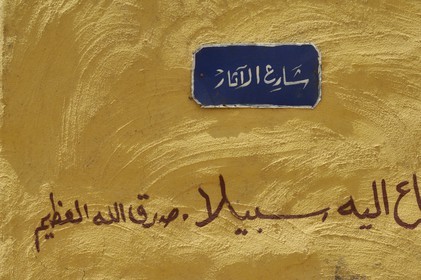 شارع الآثار
اع اليه سبيلا. صدق الله العظيم